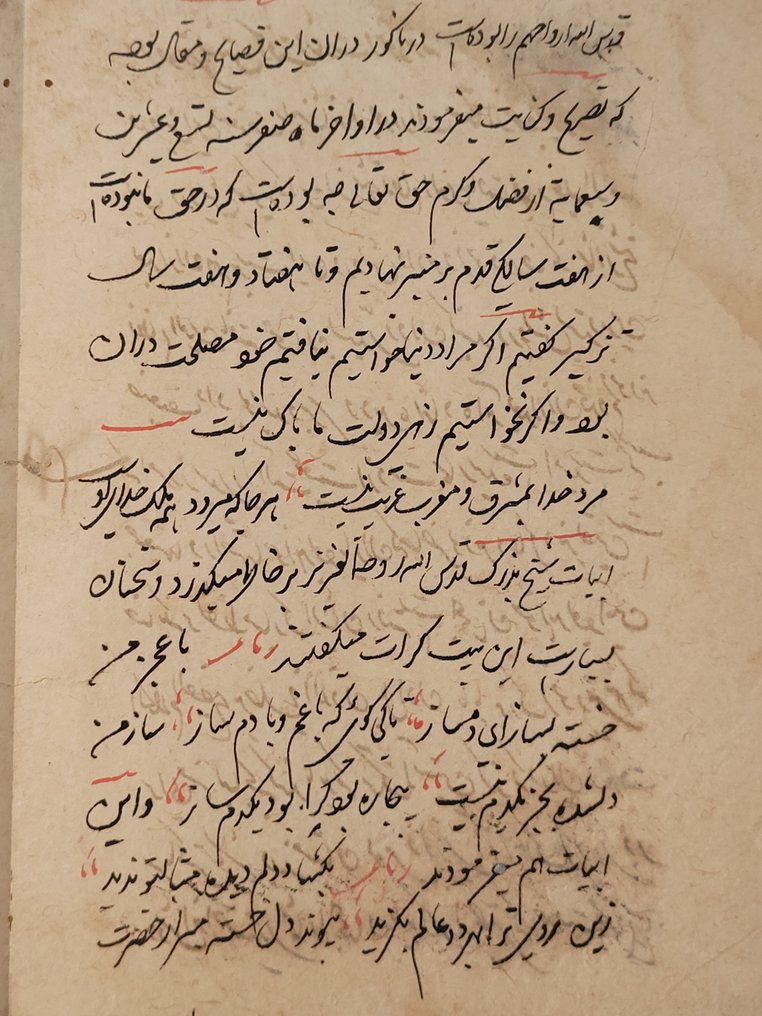 قدس الله ارواحهم را بوده است در ناکور دران این فصایح و مقال بوجه
که تصریح و کنایت میفرمودند در اواخر ماه صفر سنه تسع و عشرین
و سبعمایة از فضل و کرم حق تعالی چه بوده است که در حق ما نبوده است
از هفت سالکی قدم بر منبر نهادیم و تا هفتاد و هفت سال
تذکیر کفتیم اکر مراد دنیا خواستیم نیافتیم خود مصلحت دران
بود و اکر نخواستیم زهی دولت ما باک نیست
مرد خدا بمشرق و مغرب غریب نیست هر جا که میرود همه ملک خدای او
ابیات شیخ بزرک قدس الله روحه العزیز بر خاطر میکذرد و سخنان
بسیارست این بیت کرات میکفتند رباعی با عجز من
خسته بساز ای دمساز تا کی کوئی که با غم و با دم ساز ساز من
دلشده بجز یکدم نیست بیچاره بود کرا بود یکدم ساز و این
ابیات هم میفرمودند رباعی بکشاد دلم دیده مثال تو ندید
زین روی ترا بهر دو عالم بکزید پیوند دل خسته من از حضرت